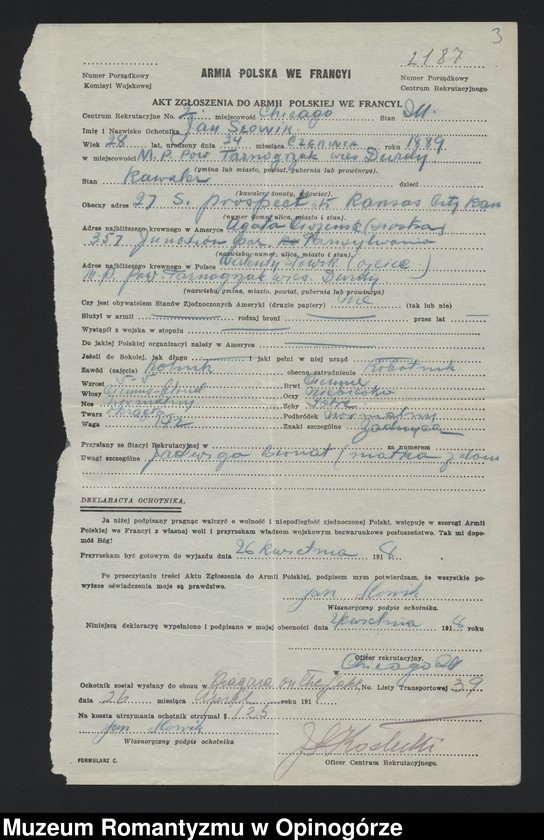 3
2187
Numer Porządkowy
Komisyi Wojskowej
ARMIA POLSKA WE FRANCYI
Numer Porządkowy
Centrum Rekrutacyjnego
AKT ZGŁOSZENIA DO ARMII POLSKIEJ WE FRANCYI.
Centrum Rekrutacyjne No. 2. miejscowość Chicago Stan Ill.
Imię i Nazwisko Ochotnika Jan Słowik.
Wiek 28 lat, urodzony dnia 24 miesiąca Czerwca roku 1889
w miejscowości M.P. Pow Tarnogrzak wies Durdy
(gmina lub miasto, powiat, gubernia lub prowincya).
Stan Kawaler dzieci
(kawaler, żonaty, wdowiec).
Obecny adres 27 S. prospect st Kansas City Kan
(numer domu, ulica, miasto i stan).
Adres najbliższego krewnego w Ameryce Agata (siostra)
357 Junction Pensylwania
(nazwisko, numer, ulica, miasto i stan).
Adres najbliższego krewnego w Polsce Walenty Słowik (ojciec)
M.P. pow Tarnogrzak wies. Durdy
(nazwisko, gmina, miasto, powiat, gubernia lub prowincya)
Czy jest obywatelem Stanów Zjednoczonych Ameryki (drugie papiery) Nie (tak lub nie)
Służył w armii rodzaj broni przez lat
Wystąpił z wojska w stopniu
Do jakiej Polskiej organizacyi należy w Ameryce
Jeżeli do Sokołej, jak długo i jaki pełni w niej urząd
Zawód (zajęcie) Rolnik obecna zatrudnienie Robotnik
Wzrost 5-5 Brwi Ciemne
Włosy Ciemno-blond Oczy Niebieskie
Nos normalny Zęby
Twarz okrągła Podbródek normalny
Waga 152 Znaki szczególne żadnych
Przysłany ze Stacyi Rekrutacyjnej w za numerem
Uwagi szczególne Jadwiga (matka z domu
DEKLARACYA OCHOTNIKA.
Ja niżej podpisany pragnąc walczyć o wolność i niepodległość zjednoczonej Polski, wstępuję w szeregi Armii
Polskiej we Francyi z własnej woli i przyrzekam władzom wojskowym bezwarunkowe posłuszeństwo. Tak mi dopo-
móż Bóg!
Przyrzekam być gotowym do wyjazdu dnia 26 kwietnia 1918.
Po przeczytaniu treści Aktu Zgłoszenia do Armii Polskiej, podpisem mym potwierdzam, że wszystkie po-
wyższe oświadczenia moje są prawdziwe.
Jan Słowik
Własnoręczny podpis ochotnika.
Niniejszą deklaracyę wypełniono i podpisano w mojej obecności dnia kwietnia 1918 roku
Oficer rekrutacyjny.
w Chicago Ill
Ochotnik został wysłany do obozu w Niagara on the Lake No. Listy Transportowej 39
dnia 26 miesiąca April roku 191
Na koszta utrzymania ochotnik otrzymał $ 1.25
Jan Słowik
Własnoręczny podpis ochotnika
Oficer Centrum Rekrutacyjnego.
FORMULARZ C.
Muzeum Romantyzmu w Opinogórze